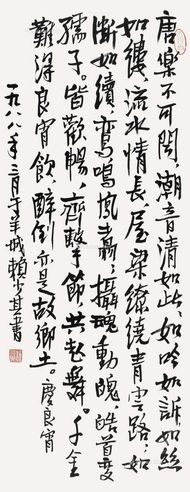 唐樂不可聞，潮音清如此，如吟如訴如絲
如縷，流水情長，屋梁繚繞青雲路，如
斷如續鸞鳴鳳翥，攝魂動魄，皓首變
孺子。皆歡暢，齊擊節共起舞。千金
難得良宵飲，醉倒亦是故鄉土。慶良宵
一九八八年三月于羊城賴少其書